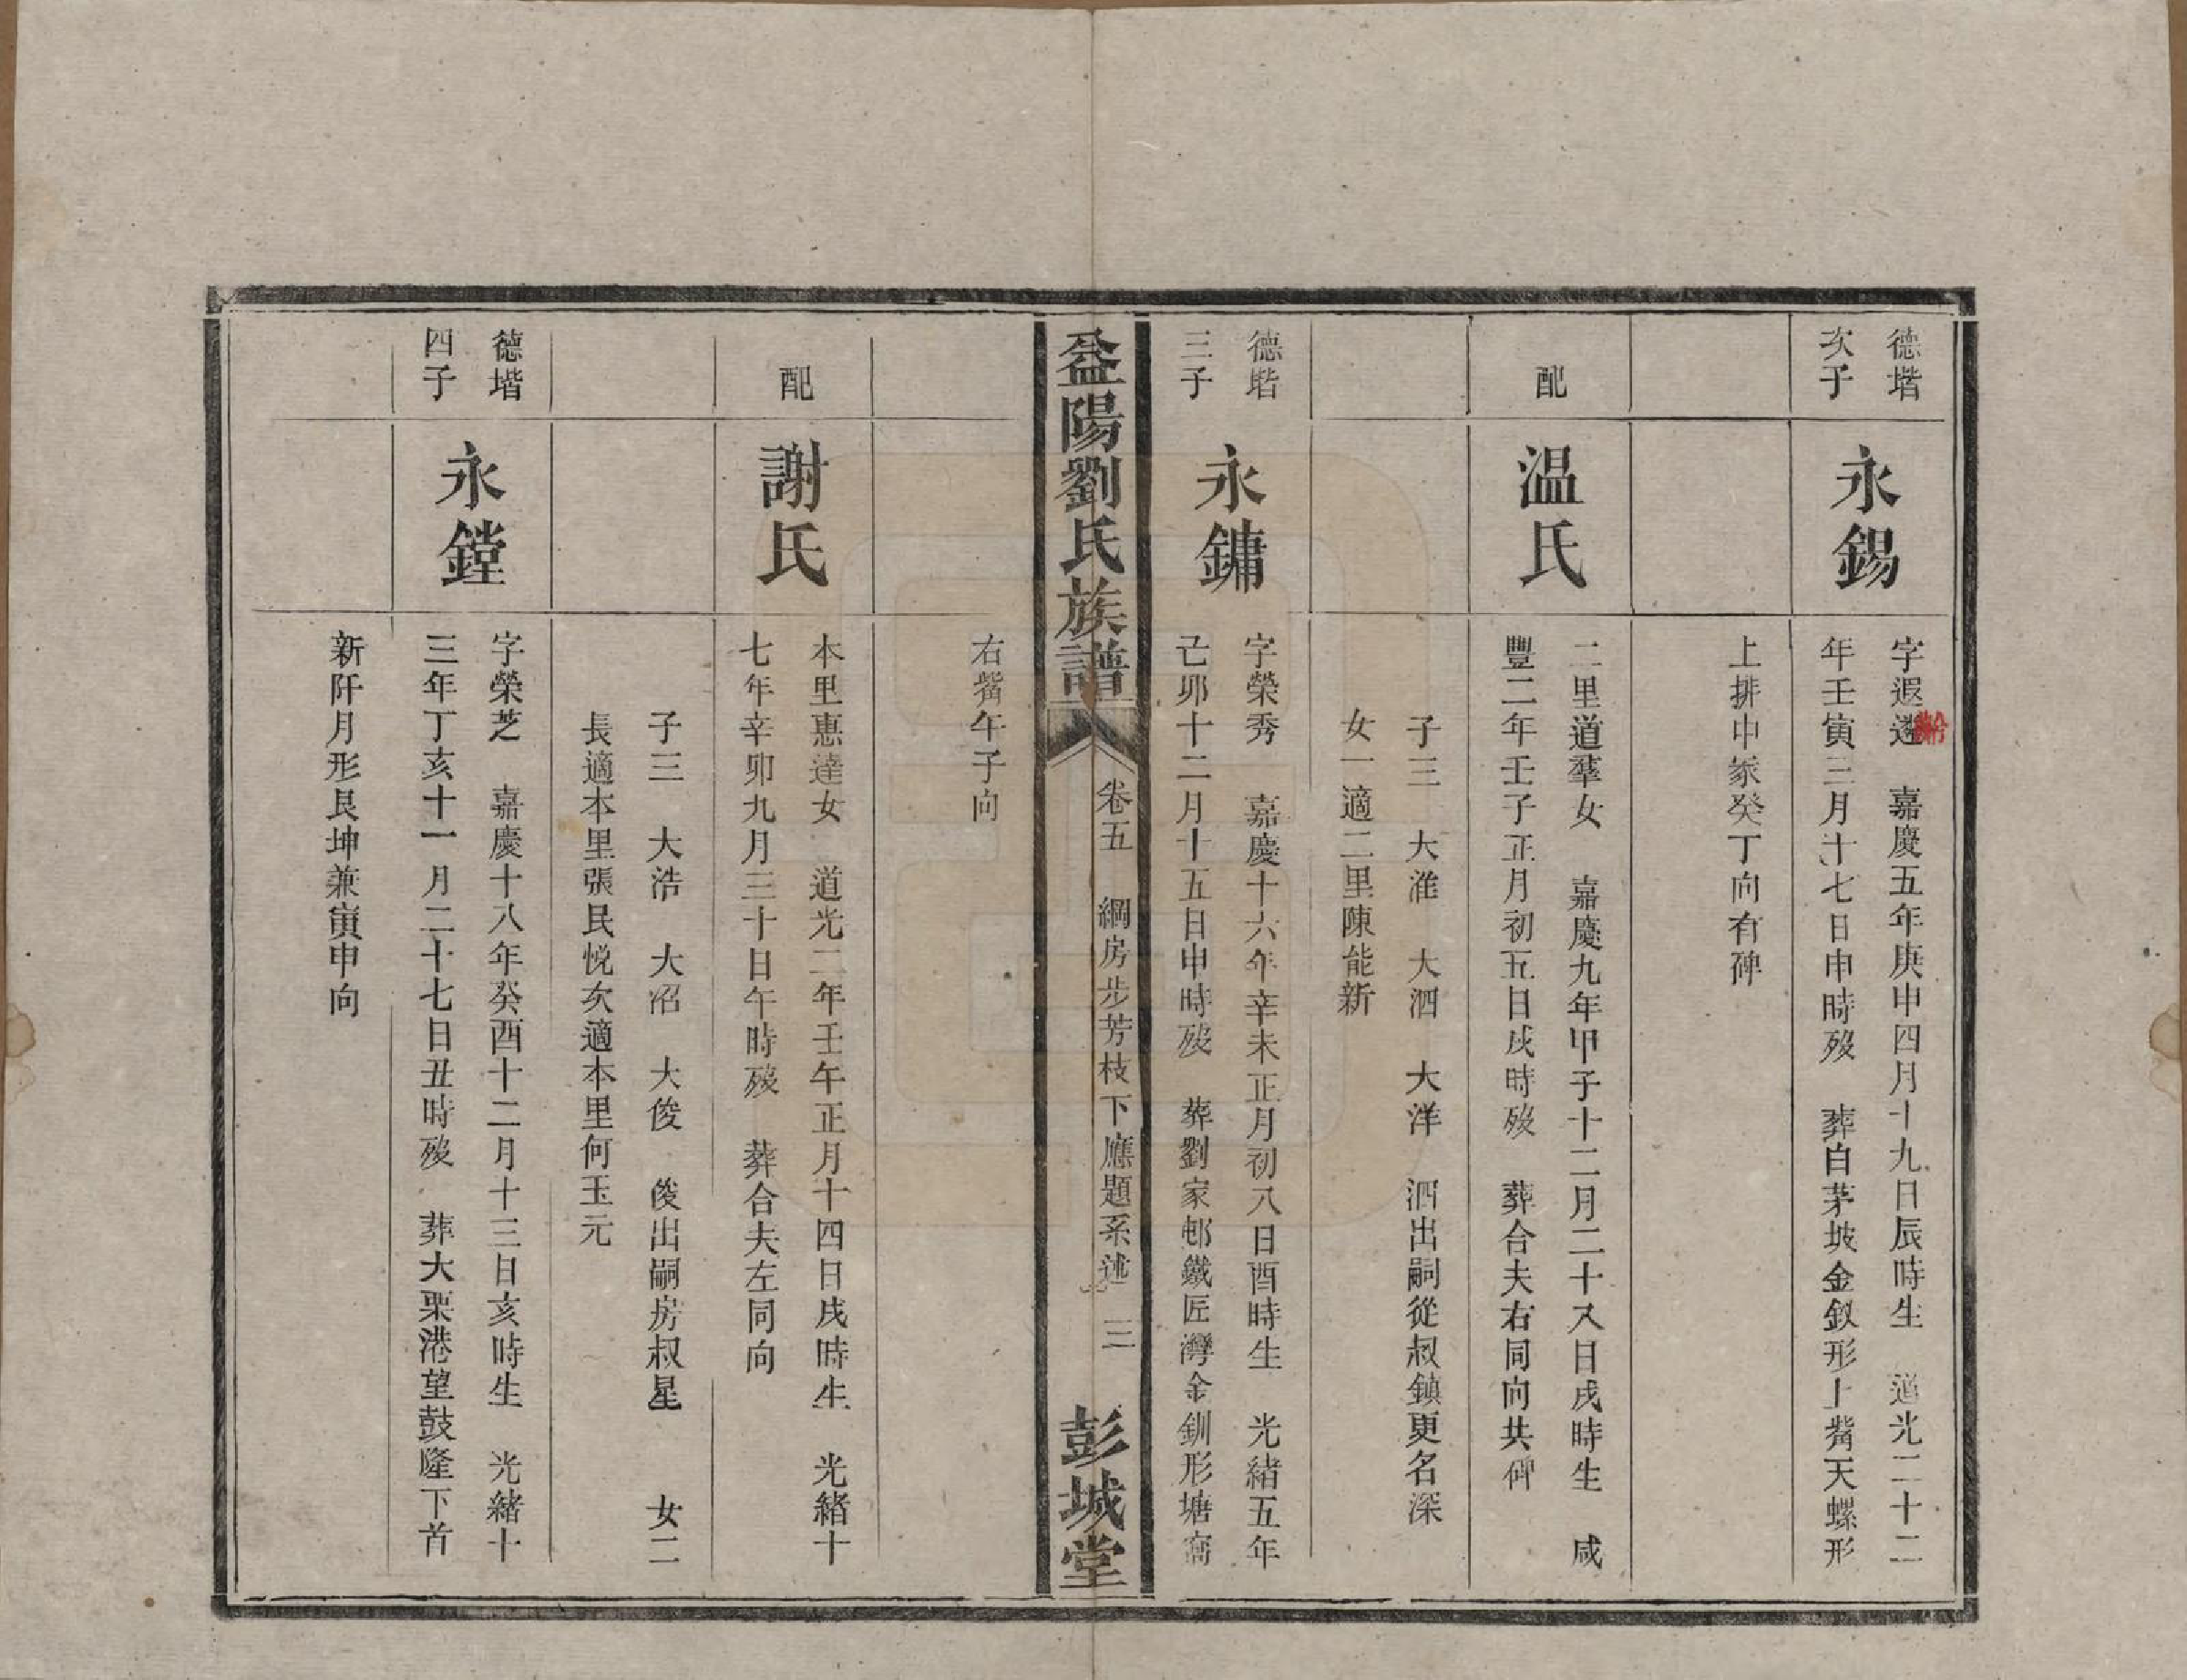 德堦
次子
永錫
字遐邇　嘉慶五年庚申四月十九日辰時生　道光二十二
年壬寅三月十七日申時歿　葬白茅坡金釵形上嘴天螺形
上排中冢癸丁向有碑
配
温氏
二里道羣女　嘉慶九年甲子十二月二十八日戌時生　咸
豐二年壬子正月初五日戌時歿　葬合夫右同向共碑
子三　大淮　大泗　大洋　泗出嗣從叔鎮更名深
女一適二里陳能新
德堦
三子
永鏞
字榮秀　嘉慶十六年辛未正月初八日酉時生　光緒五年
己卯十二月十五日申時歿　葬劉家邨鐵匠灣金釧形塘窩
益陽劉氏族譜
卷五　綱房步芳枝下應題系述　三
彭城堂
右嘴午子向
配
謝氏
本里惠達女　道光二年壬午正月十四日戌時生　光緒十
七年辛卯九月三十日午時歿　葬合夫左同向
子三　大浩　大沼　大俊　俊出嗣房叔星　女二
長適本里張民悦次適本里何玉元
德堦
四子
永鏜
字榮芝　嘉慶十八年癸酉十二月十三日亥時生　光緒十
三年丁亥十一月二十七日丑時歿　葬大栗港望鼓隆下首
新阡月形艮坤兼寅申向